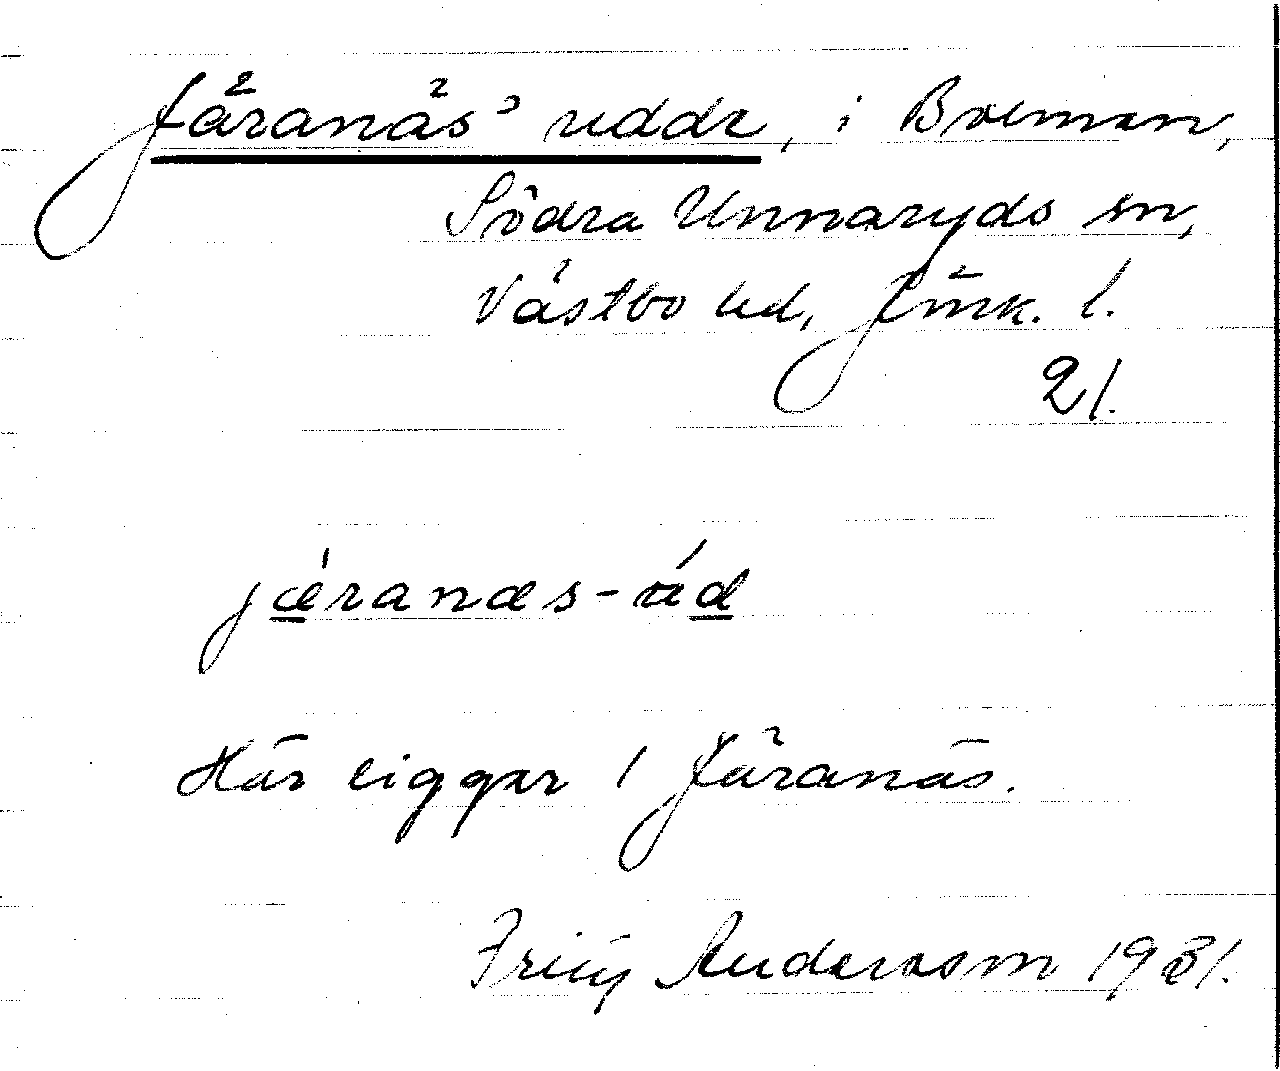 Järanäs' udde, i Bolmen,
Södra Unnaryds sn,
Västbo hd, Jönk. l.
21.
jæranæs-ud
Här ligger 1 Järanäs.
Andersson 1931.